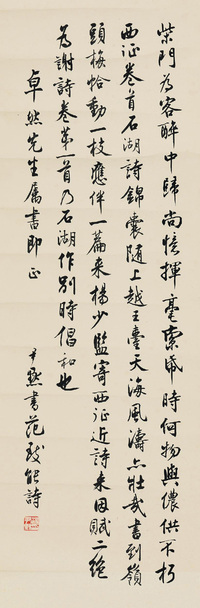 柴門為客醉中歸尚憶揮毫索紙時何物與儂供不朽
西征卷首石湖詩錦囊隨上越王臺天海風濤亦壯哉書到嶺
頭梅恰動一枝應伴一篇來楊少監寄西征近詩來因賦二絕
為謝詩卷第一首乃石湖作別時倡和也
卓然先生属書即正
尹默書范致能詩